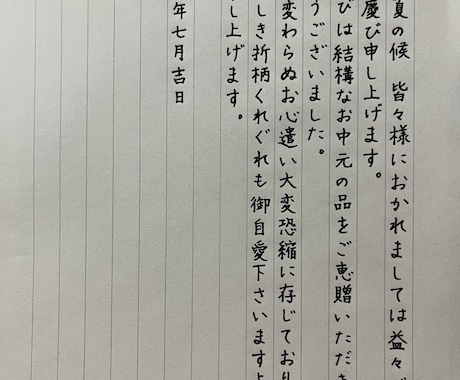 夏の候　皆々様におかれましては益々ご
慶び申し上げます。
びは結構なお中元の品をご恵贈いただき
うございました。
変わらぬお心遣い大変恐縮に存じており
しき折柄くれぐれも御自愛下さいますよ
し上げます。
年七月吉日